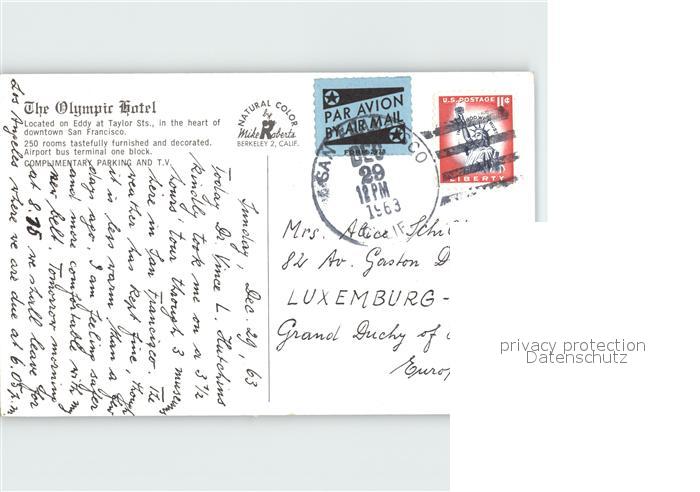 The Olympic Hotel
Located on Eddy at Taylor Sts., in the heart of
downtown San Francisco.
250 rooms tastefully furnished and decorated.
Airport bus terminal one block.
COMPLIMENTARY PARKING AND T.V.
NATURAL COLOR
by
Mike Roberts
BERKELEY 2, CALIF.
PAR AVION
BY AIR MAIL
U.S. POSTAGE 11¢
LIBERTY
DEC
29
12 PM
1963
Sunday, Dec. 29, 63
Today Dr. Vince L. Hutchins
kindly took me on a 3½
hours tour through 3 museums
here in San Francisco. The
weather has kept fine, though
it is less warm than a few
days ago. I am feeling safer
and more comfortable with my
new belt. Tomorrow morning
at 8.15 we shall leave for
Los Angeles where we are due at 6.05 p.m.
Mrs. Alice
82 Av. Gaston D
LUXEMBURG-
Grand Duchy of
Europ
privacy protection
Datenschutz